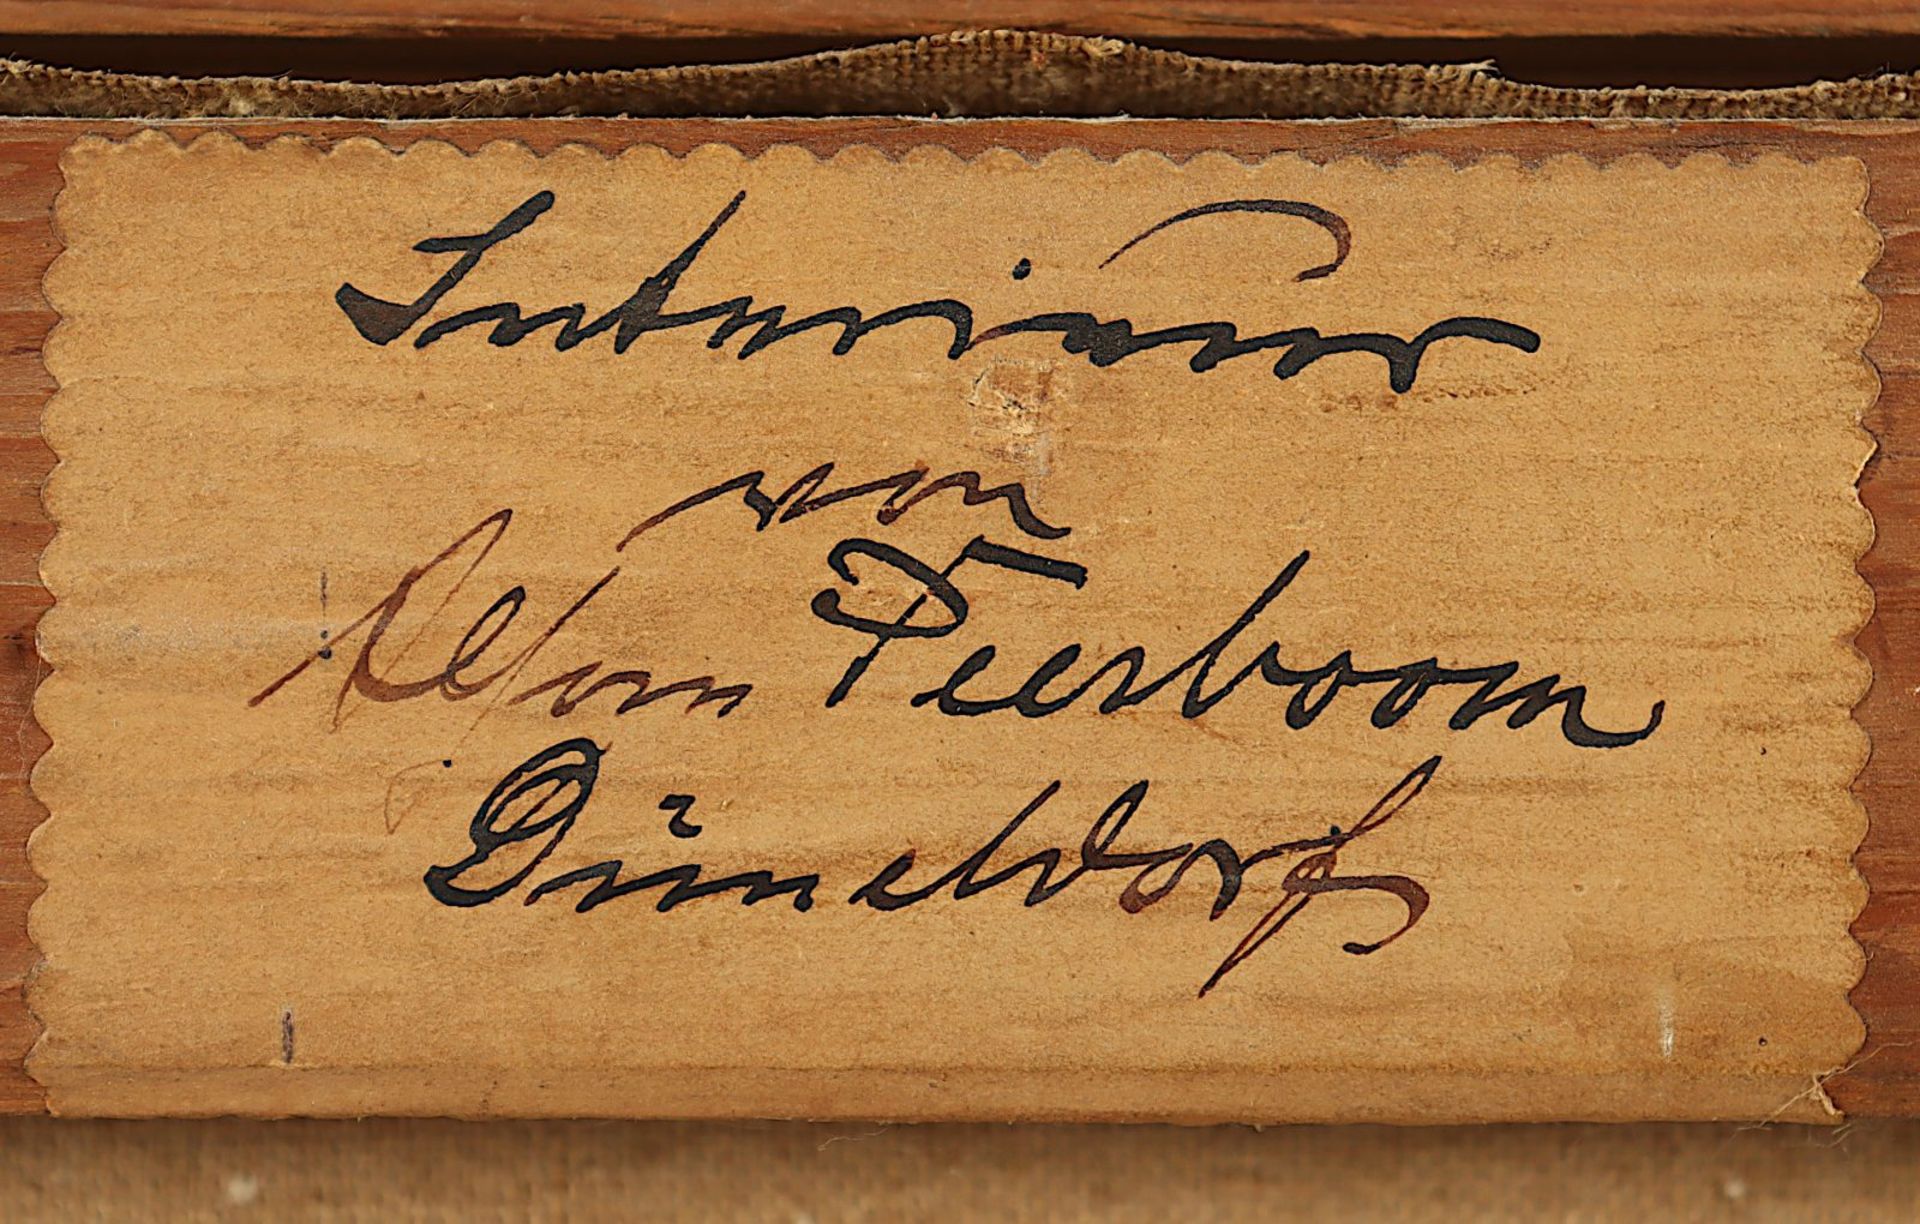 Interieur
von
Alfons Peerboom
Düsseldorf